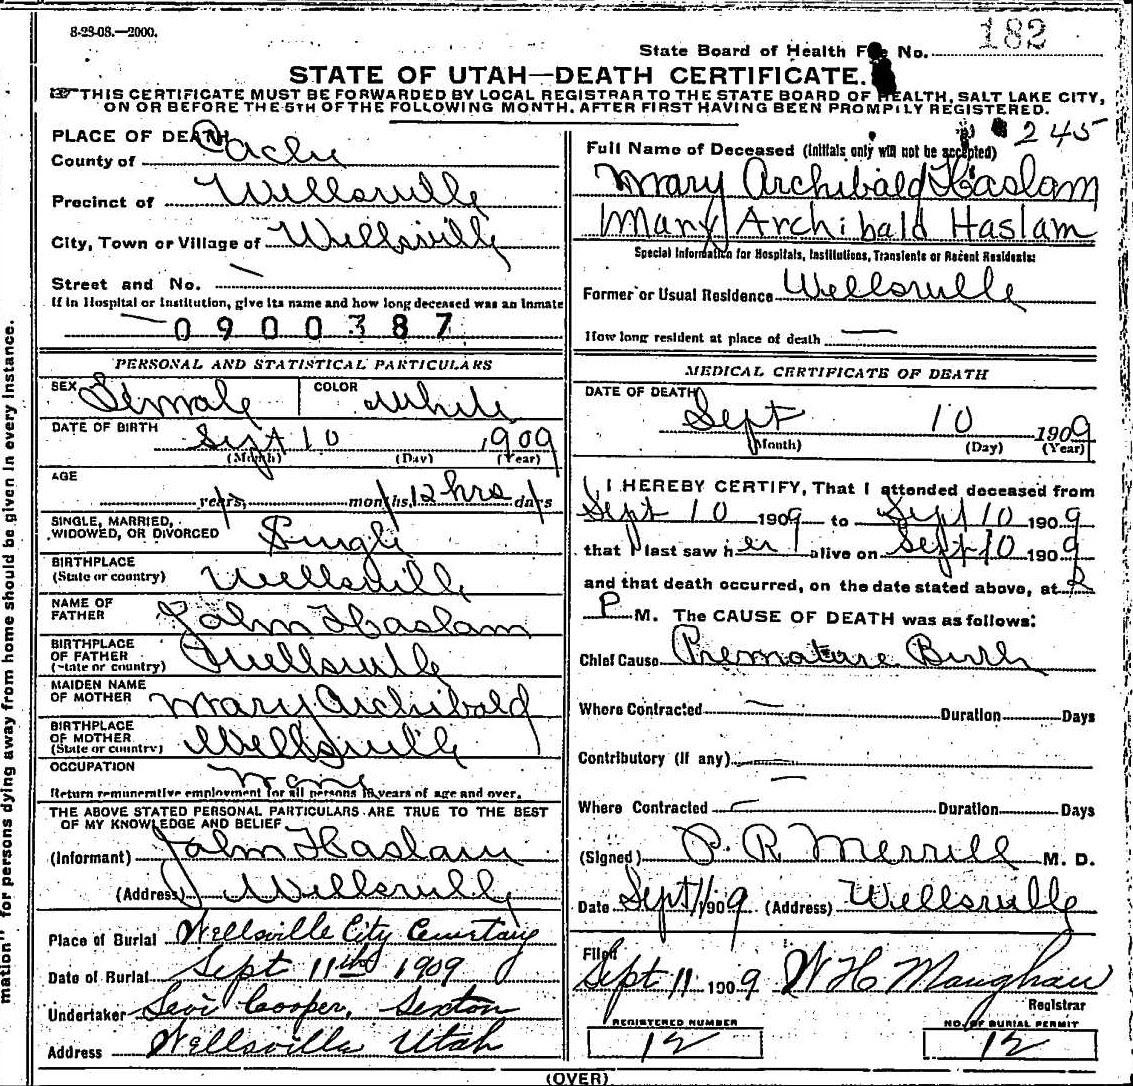 8-23-08.—2000.
182
State Board of Health File No.
STATE OF UTAH—DEATH CERTIFICATE.
THIS CERTIFICATE MUST BE FORWARDED BY LOCAL REGISTRAR TO THE STATE BOARD OF HEALTH, SALT LAKE CITY,
ON OR BEFORE THE 5TH OF THE FOLLOWING MONTH, AFTER FIRST HAVING BEEN PROMPILY REGISTERED.
245
PLACE OF DEATH
County of Cache
Precinct of Wellsville
City, Town or Village of Wellsville
Street and No. —
If in Hospital or Institution, give its name and how long deceased was an Inmate
— 0900387
Full Name of Deceased (Initials only will not be accepted)
Mary Archibald Haslam
Mary Archibald Haslam
Special Information for Hospitals, Institutions, Transients or Recent Residents:
Former or Usual Residence Wellsville
How long resident at place of death —
PERSONAL AND STATISTICAL PARTICULARS
SEX Female COLOR White
DATE OF BIRTH Sept 10 1909
(Month) (Day) (Year)
AGE
years, months, 12 hrs days
SINGLE, MARRIED,
WIDOWED, OR DIVORCED Single
BIRTHPLACE
(State or country) Wellsville
NAME OF
FATHER John Haslam
BIRTHPLACE
OF FATHER
(State or country) Wellsville
MAIDEN NAME
OF MOTHER Mary Archibald
BIRTHPLACE
OF MOTHER
(State or country) Wellsville
OCCUPATION None
Return remunerative employment for all persons 10 years of age and over.
THE ABOVE STATED PERSONAL PARTICULARS ARE TRUE TO THE BEST
OF MY KNOWLEDGE AND BELIEF
(Informant) John Haslam
(Address) Wellsville
Place of Burial Wellsville City Cemetary
Date of Burial Sept 11th 1909
Undertaker Levi Cooper, Sexton
Address Wellsville Utah
MEDICAL CERTIFICATE OF DEATH
DATE OF DEATH
Sept 10 1909
(Month) (Day) (Year)
I HEREBY CERTIFY, That I attended deceased from
Sept 10 1909 to Sept 10 1909
that I last saw her alive on Sept 10 1909
and that death occurred, on the date stated above, at 2
P M. The CAUSE OF DEATH was as follows:
Chief Cause Premature Birth
Where Contracted — Duration Days
Contributory (if any) —
—
Where Contracted — Duration Days
(Signed) P. R. Merrill M. D.
Date Sept 11 1909 (Address) Wellsville
Filed
Sept 11 1909 W H Maughan
Registrar
REGISTERED NUMBER
12
NO. OF BURIAL PERMIT
12
(OVER)
mation" for persons dying away from home should be given in every instance.